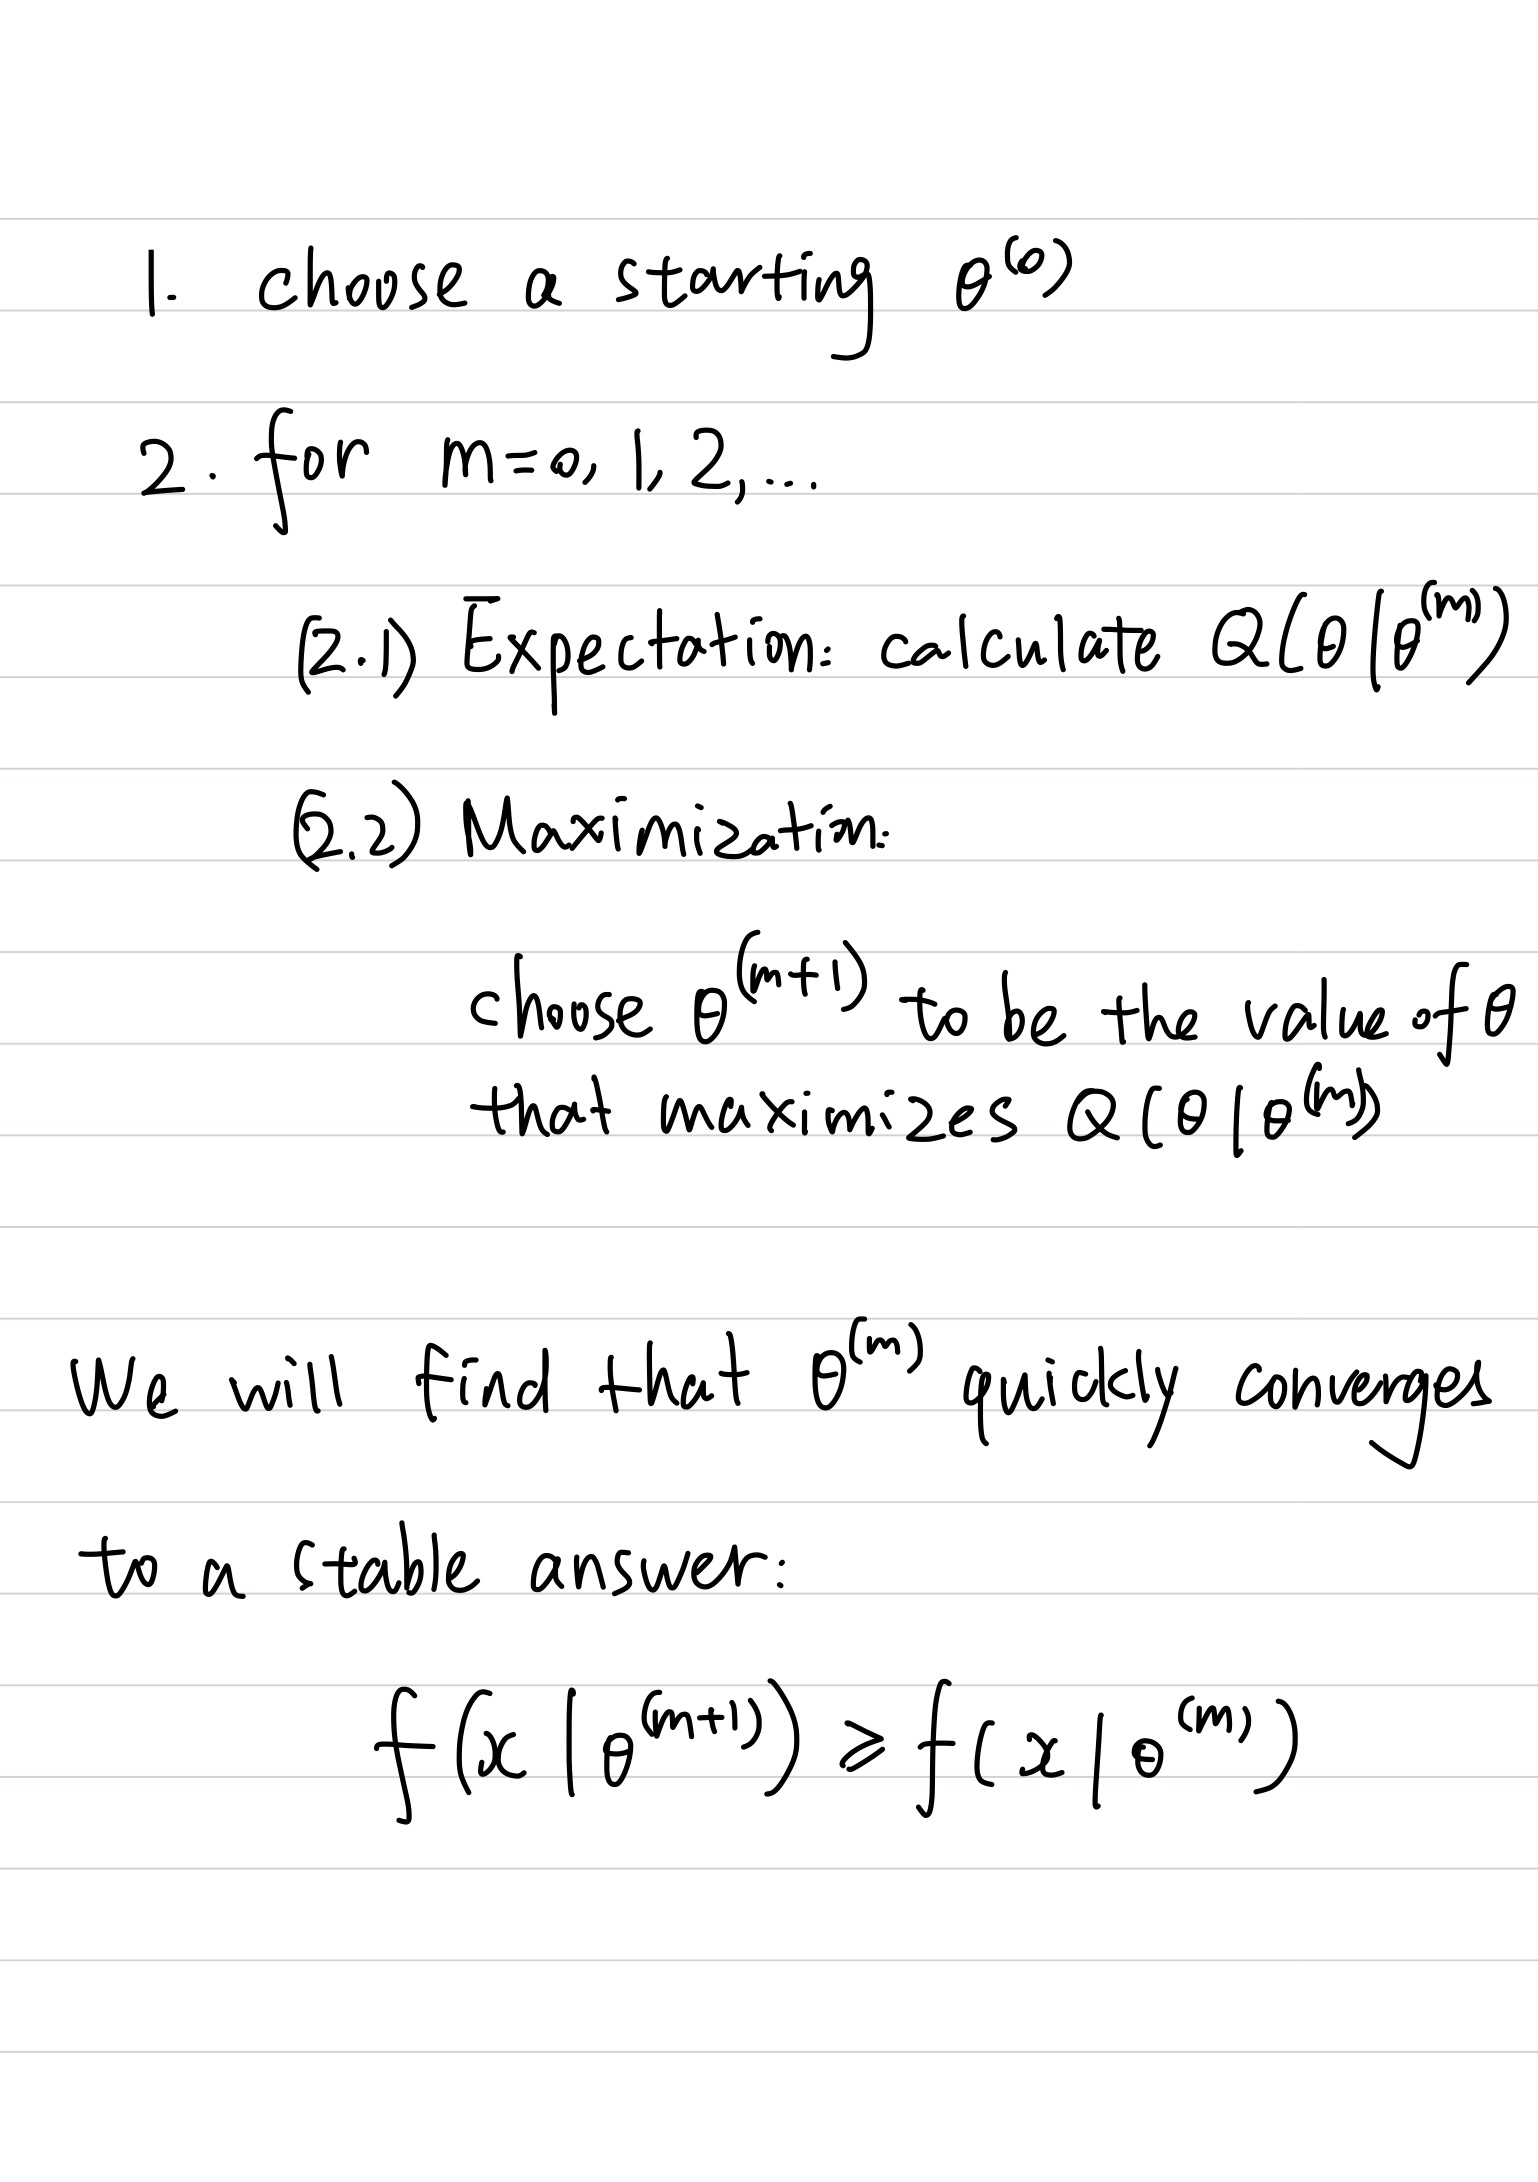 1. choose a starting θ^(0)
2. for m=0, 1, 2, ...
(2.1) Expectation: calculate Q(θ|θ^(m))
(2.2) Maximization:
choose θ^(m+1) to be the value of θ
that maximizes Q(θ|θ^(m))
We will find that θ^(m) quickly converges
to a stable answer:
f(x|θ^(m+1)) ⩾ f(x|θ^(m))